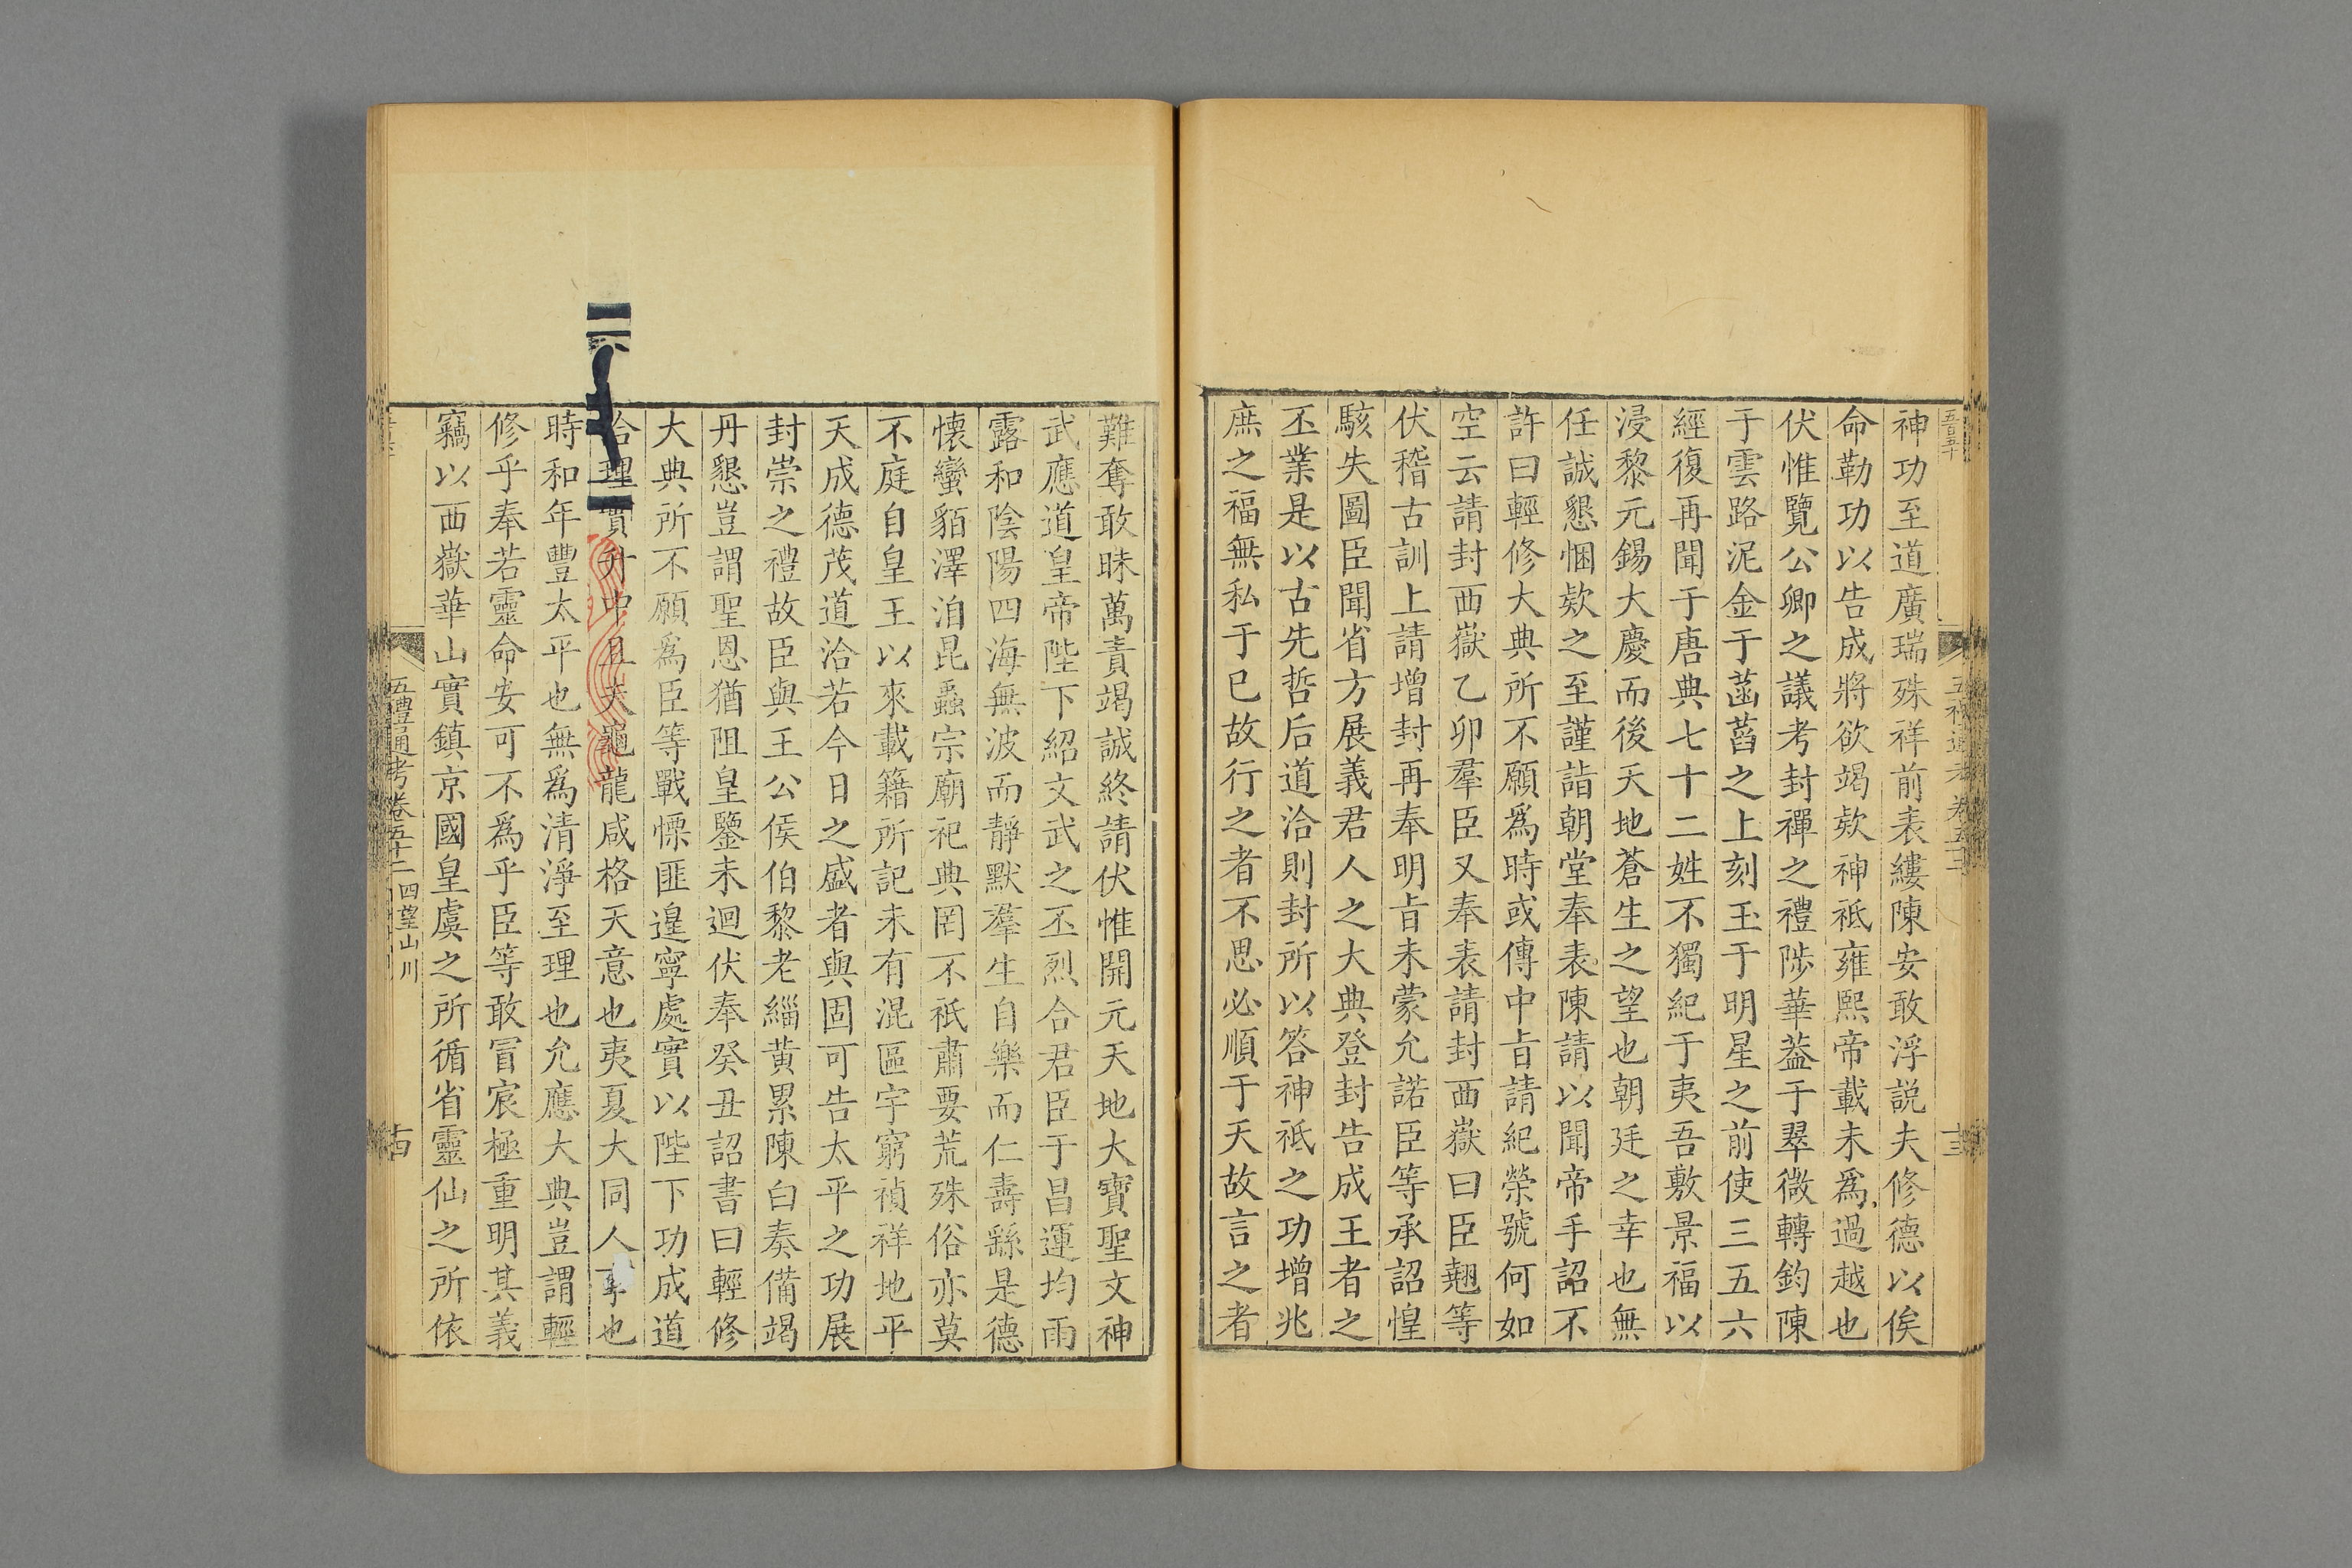 神功至道廣瑞殊祥前表縷陳安敢浮説夫修德以俟
命勒功以告成將欲竭欵神祗雍熙帝載未爲過越也
伏惟覽公卿之議考封禪之禮陟華葢于翠微轉鈞陳
于雲路泥金于菡萏之上刻玉于明星之前使三五六
經復再聞于唐典七十二姓不獨紀于夷吾敷景福以
浸黎元錫大慶而後天地蒼生之望也朝廷之幸也無
任誠懇悃欵之至謹詣朝堂奉表陳請以聞帝手詔不
許曰輕修大典所不願爲時或傳中旨請紀榮號何如
空云請封西嶽乙卯羣臣又奉表請封西嶽曰臣翹等
伏稽古訓上請增封再奉明旨未蒙允諾臣等承詔惶
駭失圖臣聞省方展義君人之大典登封告成王者之
丕業是以古先哲后道洽則封所以答神祗之功增兆
庶之福無私于已故行之者不思必順于天故言之者
五禮通考卷五十二
難奪敢昧萬責竭誠終請伏惟開元天地大寶聖文神
武應道皇帝陛下紹文武之丕烈合君臣于昌運均雨
露和陰陽四海無波而靜默羣生自樂而仁壽繇是德
懷蠻貊澤洎昆蟲宗廟祀典罔不祗肅要荒殊俗亦莫
不庭自皇王以來載籍所記未有混區宇窮禎祥地平
天成德茂道洽若今日之盛者與固可告太平之功展
封崇之禮故臣與王公侯伯黎老緇黄累陳白奏備竭
丹懇豈謂聖恩猶阻皇鑒未迴伏奉癸丑詔書曰輕修
大典所不願爲臣等戰慄匪遑寧處實以陛下功成道
洽理實升中且夫龜龍咸格天意也夷夏大同人事也
時和年豐太平也無爲清淨至理也允應大典豈謂輕
修乎奉若靈命安可不爲乎臣等敢冒宸極重明其義
竊以西嶽華山實鎮京國皇虞之所循省靈仙之所依
五禮通考卷五十二 四望山川